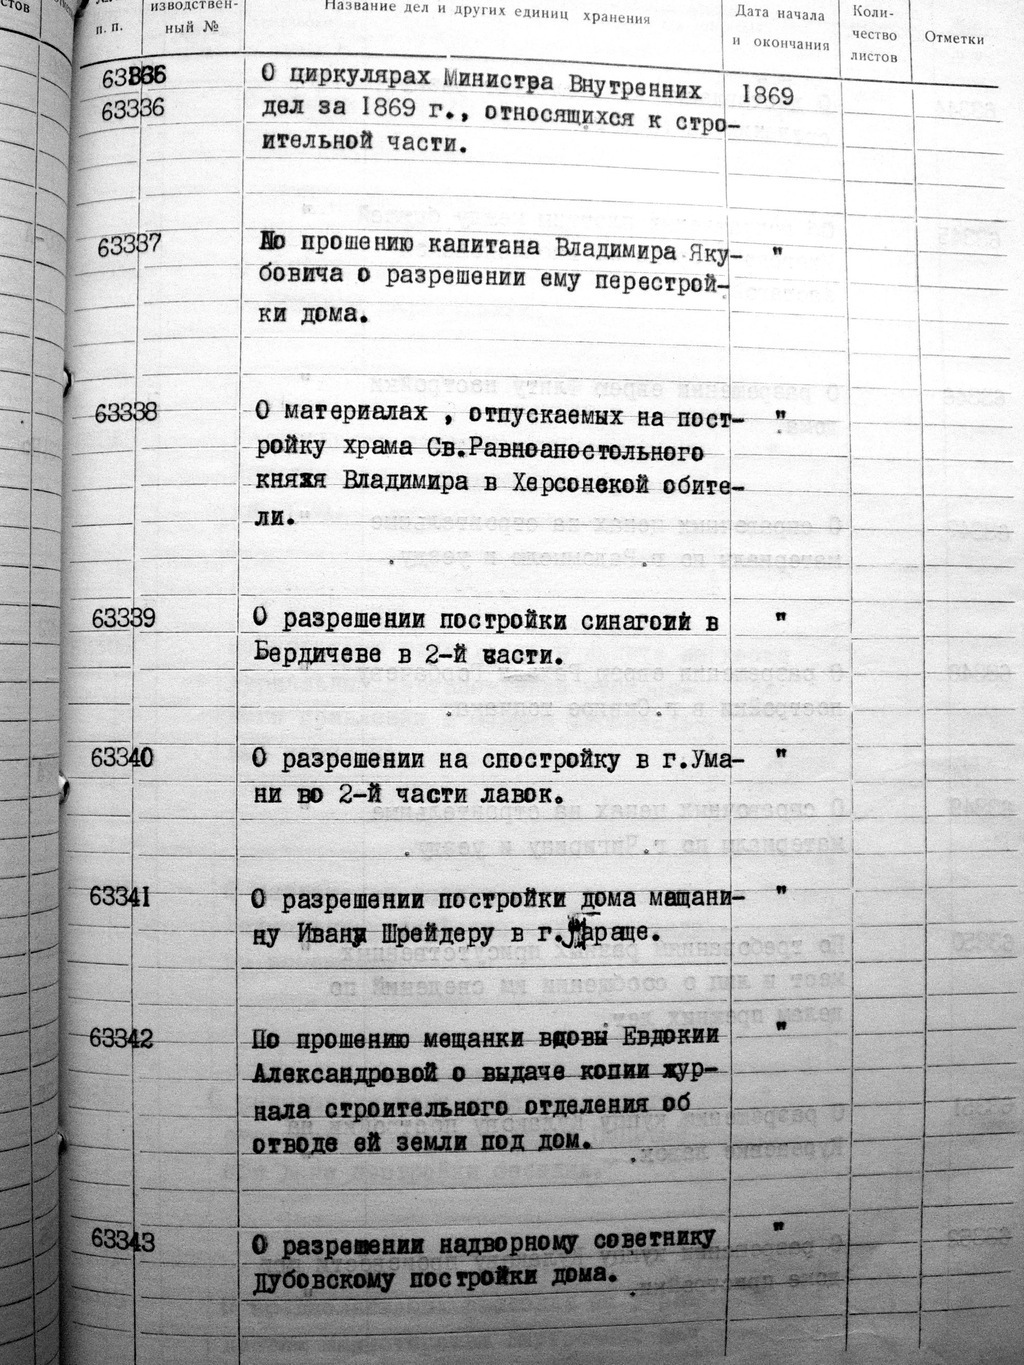 стов
п. п.
изводствен-
ный №
Название дел и других единиц хранения
Дата начала
и окончания
Коли-
чество
листов
Отметки
63336 О циркулярах Министра Внутренних 1869
63336 дел за 1869 г., относящихся к стро-
ительной части.
63337 По прошению капитана Владимира Яку- "
бовича о разрешении ему перестрой-
ки дома.
63338 О материалах , отпускаемых на пост- "
ройку храма Св.Равноапостольного
князя Владимира в Херсонской обите-
ли.
63339 О разрешении постройки синагоги в "
Бердичеве в 2-й части.
63340 О разрешении на спостройку в г.Ума- "
ни во 2-й части лавок.
63341 О разрешении постройки дома мещани- "
ну Ивану Шрейдеру в г.Тараще.
63342 По прошению мещанки вдовы Евдокии "
Александровой о выдаче копии жур-
нала строительного отделения об
отводе ей земли под дом.
63343 О разрешении надворному советнику "
Дубовскому постройки дома.